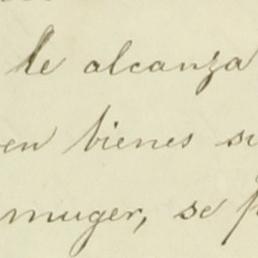 le alcanza
en bienes su
muger, se